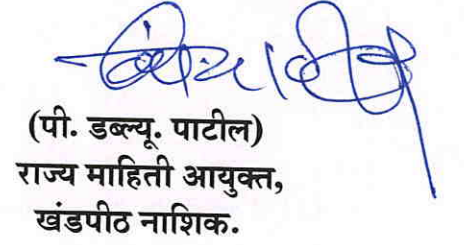 (पी. डब्ल्यू. पाटील)
राज्य माहिती आयुक्त,
खंडपीठ नाशिक.